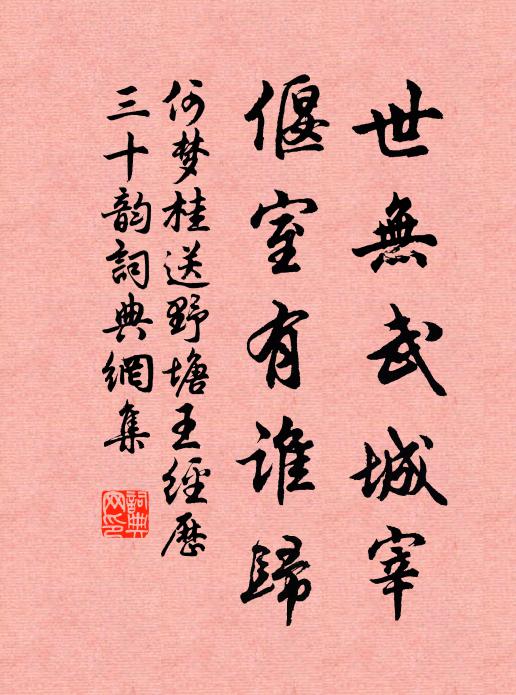 世無武城宰
偃室有誰歸
何梦桂送野塘王經歷
三十韵詞典網集
詞典网印